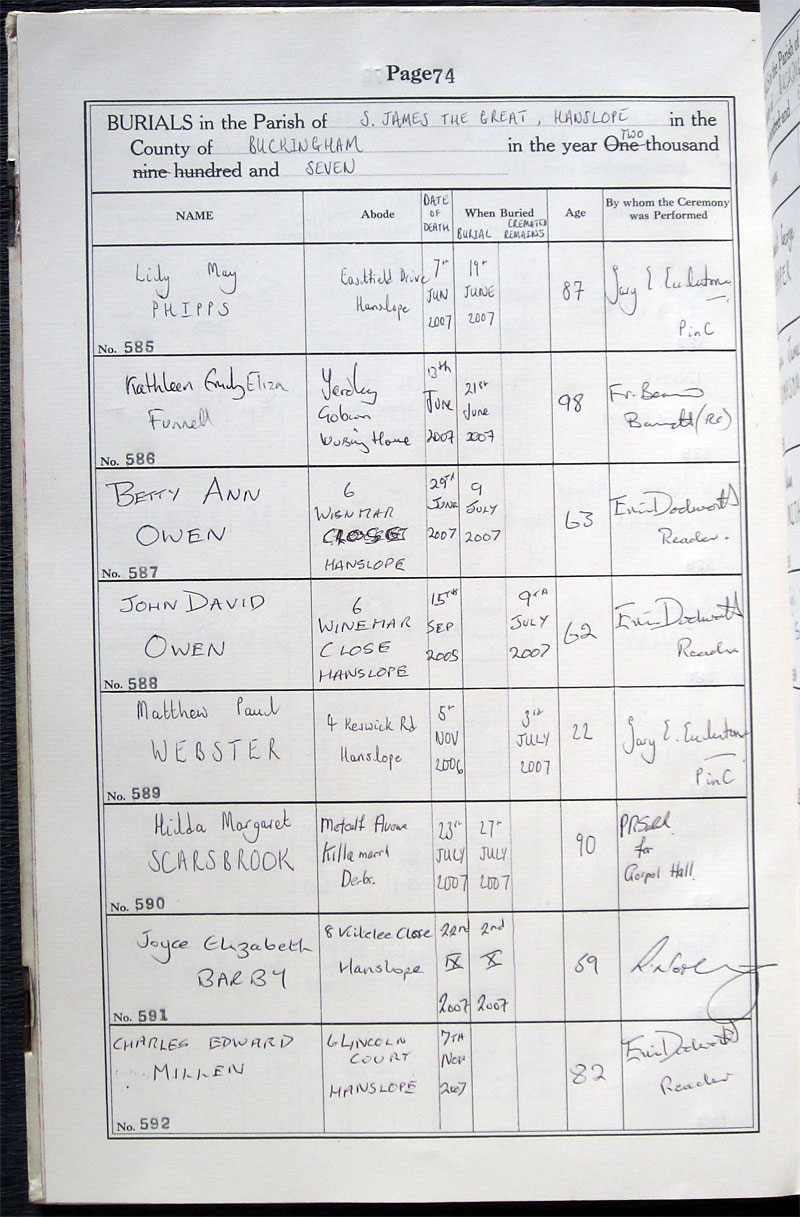 Page74
BURIALS in the Parish of S. JAMES THE GREAT, HANSLOPE in the
County of BUCKINGHAM in the year One TWO thousand
nine hundred and SEVEN
NAME Abode DATE OF DEATH When Buried BURIAL CREMATED REMAINS Age By whom the Ceremony was Performed
Lily May Eastfield Drive 7th 19th
PHIPPS Hanslope JUN JUNE 87 Gary E
2007 2007 PinC
No. 585
Kathleen Emily Eliza Yardley 13th 21st Fr.
Funnell Gobion June June 98 (RC)
Home 2007 2007
No. 586
BETTY ANN 6 29TH 9
OWEN WISNMAR JUNE JULY 63 Erin Dodworth
CLOSE 2007 2007 Reader.
HANSLOPE
No. 587
JOHN DAVID 6 15TH 9TH
OWEN WINEMAR SEP JULY 62 Erin Dodworth
CLOSE 2005 2007 Reader
HANSLOPE
No. 588
Matthew Paul 4 Keswick Rd 5th 3rd
WEBSTER Hanslope NOV JULY 22 Gary E.
2006 2007 PinC
No. 589
Hilda Margaret Metcalf Avenue 23rd 27th
SCARSBROOK Killamarsh JULY JULY 90 for
Derbs. 2007 2007 Gospel Hall
No. 590
Joyce Elizabeth 8 Close 22nd 2nd
BARBY Hanslope IX X 59
2007 2007
No. 591
CHARLES EDWARD 6 LINCOLN 7TH
MILLEN COURT Nov 82 Erin Dodworth
HANSLOPE 2007 Reader
No. 592